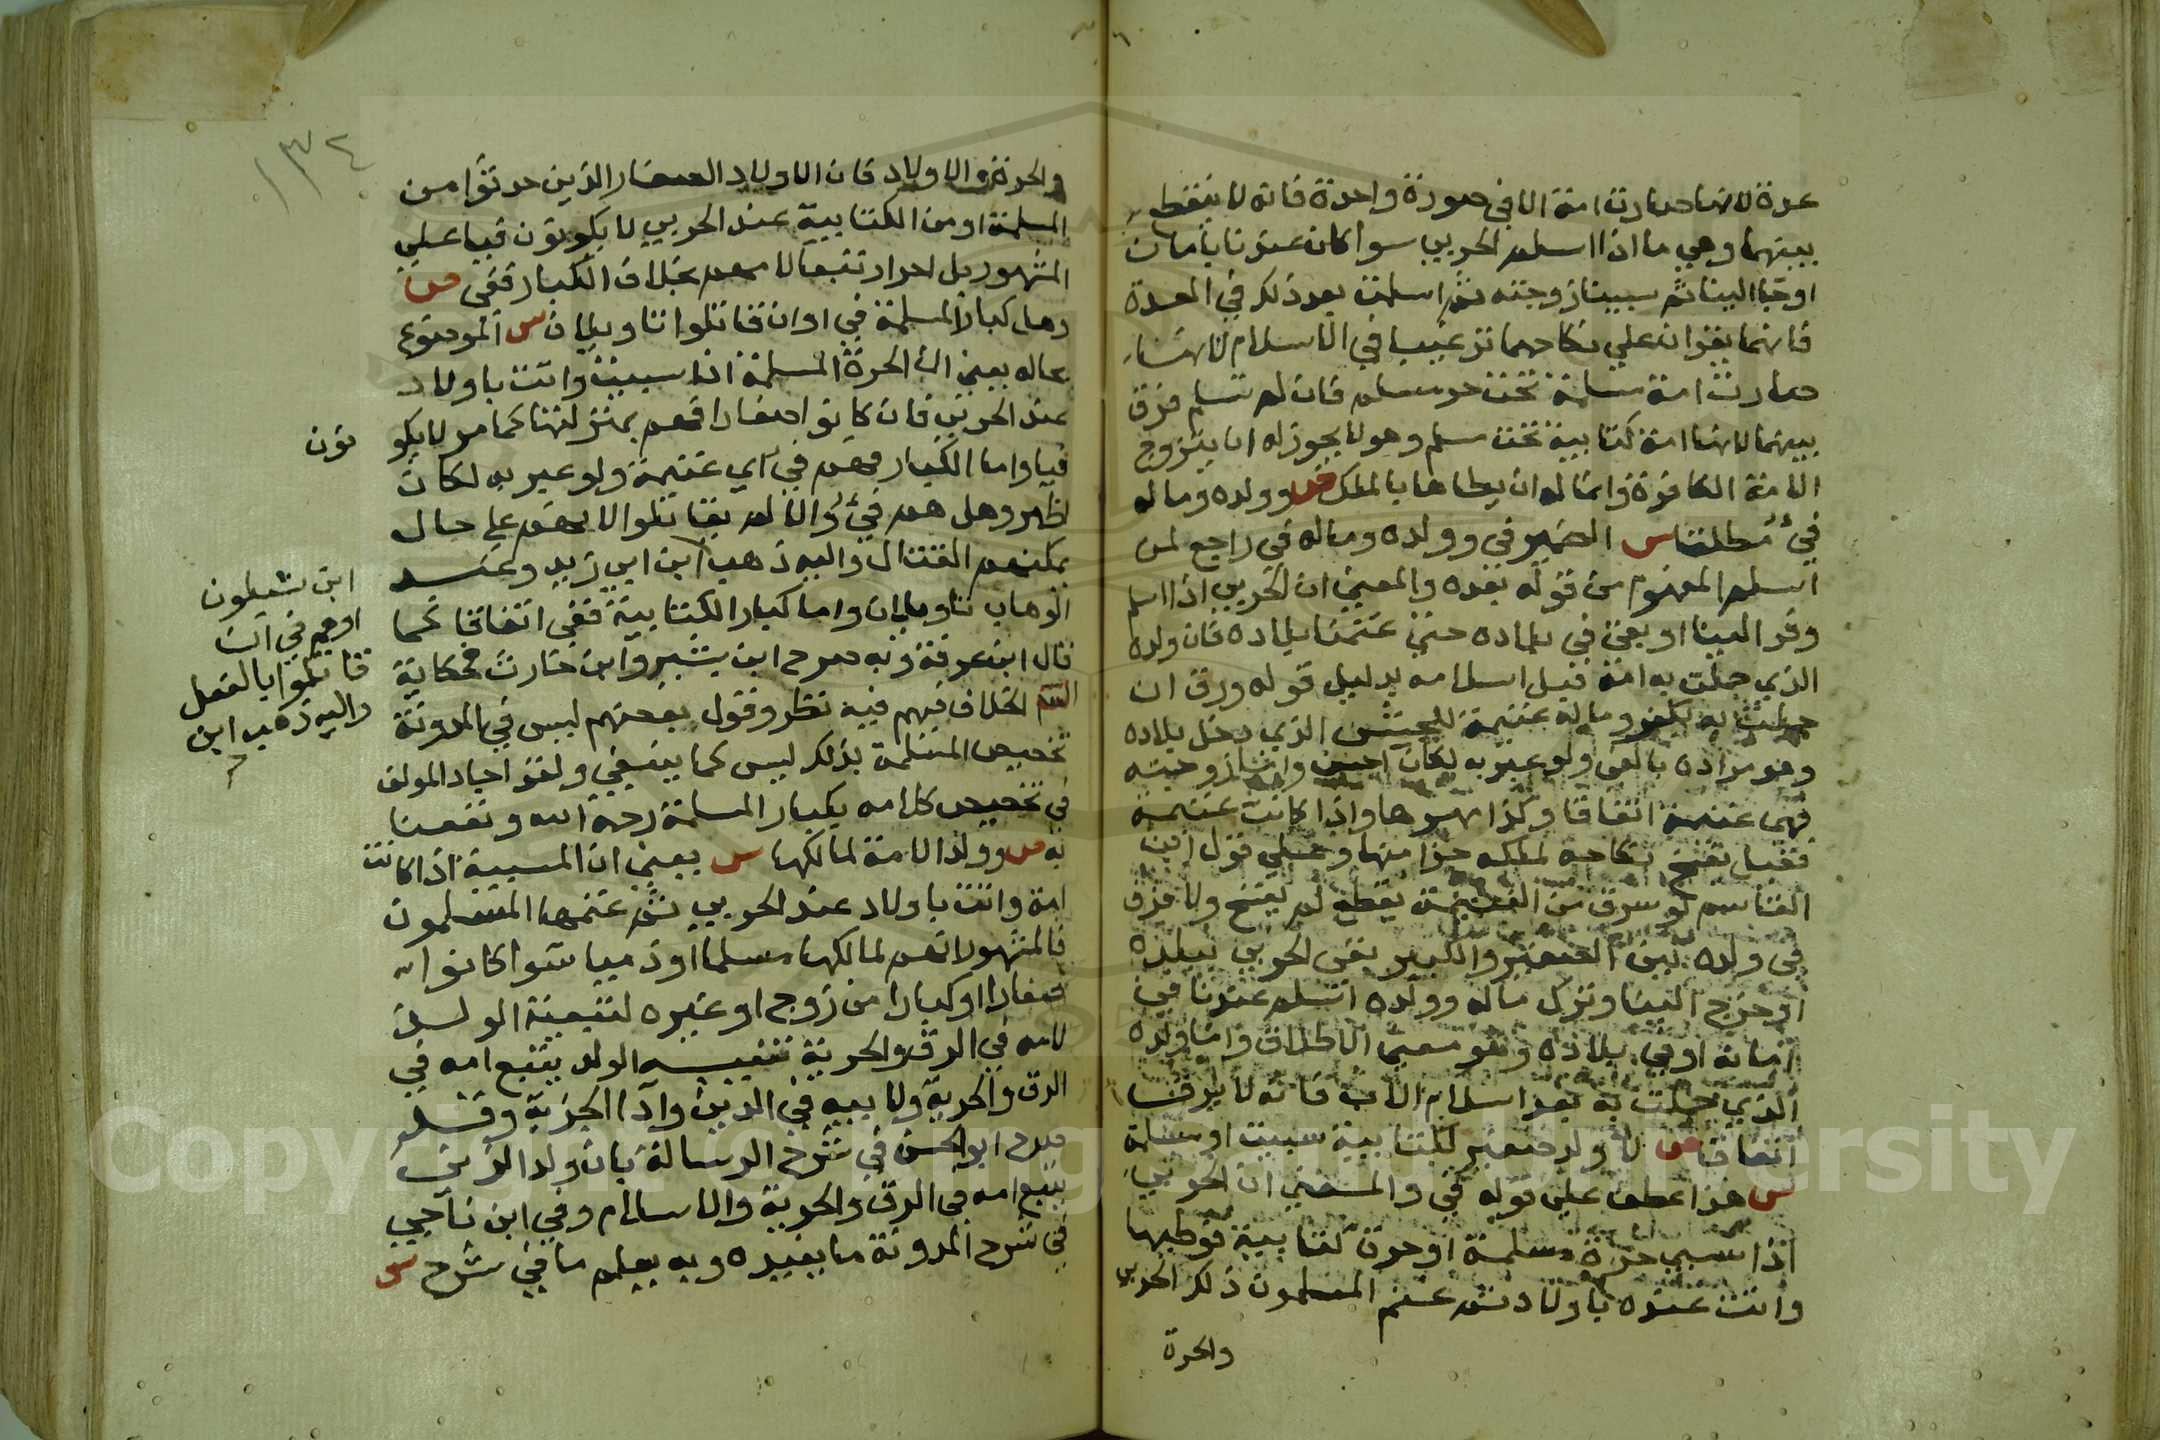 عدة لانها صارت امة الا في صورة واحدة فانه لا يفرق
بينهما وهي ما اذا اسلم الحربي سوا كان عندنا بامان
او جا الينا ثم سبينا زوجته ثم اسلمت بعد ذلك في العدة
فانهما يقران على نكاحهما ترغيبا في الاسلام لانها
صارت امة مسلمة تحت حر مسلم فان لم تسلم فرق
بينهما لانها امة كتابية تحت مسلم وهو لا يجوز له ان يتزوج
الامة الكافرة وانما له ان يطاها بالملك ص وولده وماله
فيء مطلقا س الضمير في وولده وماله في راجع لمن
اسلم المفهوم من قوله بعده والمعنى ان الحربي اذا اسلم
وفر الينا او بقي في بلاده حتى غنمنا بلاده فان ولده
الذي حملت به امه قبل اسلامه بدليل قوله ورق ان
حملت به بكفر وماله غنيمة للجيش الذي دخل بلاده
وهو مراده بالفي ولو عبر به لكان احسن واما زوجته
فهي غنيمة اتفاقا وكذا مهرها واذا كانت غنيمة
فقيل يفسخ نكاحه لملكه جزا منها وعلى قول ابن
القاسم لو سرق من الغنيمة يقطع لم يفسخ ولا فرق
في ولده بين الصغير والكبير بقي الحربي ببلده
او خرج الينا وترك ماله وولده اسلم عندنا في
امانه او في بلاده وهو معنى الاطلاق واما ولده
الذي حملت به بعد اسلام الاب فانه لا يرق
اتفاقا ص لا ولد صغير لكتابية سبيت او مسلمة
س هذا عطف على قوله في والمعنى ان الحربي
اذا سبى حرة مسلمة او حرة كتابية فوطيها
واتت عنده باولاد ثم غنم المسلمون ذلك الحربي
والحرة
١٣٤
والحرة والاولاد فان الاولاد الصغار الذين حدثوا من
المسلمة او من الكتابية عند الحربي لا يكونون فيا على
المشهور بل احرار تبعا لامهم بخلاف الكبار ففي ص
وهل كبار المسلمة في او ان قاتلوا تاويلان س الموضوع
بحاله يعني ان الحرة المسلمة اذا سبيت واتت باولاد
عند الحربي فان كانوا صغارا فهم بمنزلتها كما مر لا يكو
نون
فيا واما الكبار فهم في اي غنيمة ولو عبر به لكان
اظهر وهل هم فيء وان لم يقاتلوا لانهم على حال
يمكنهم القتال واليه ذهب ابن ابي زيد وعبد
ابن شبلون
او هم في ان
قاتلوا بالفعل
واليه ذهب ابن
الوهاب تاويلان واما كبار الكتابية ففي اتفاقا كما
قال ابن عرفة وبه صرح ابن بشير وابن حارث فحكاية
الشم الخلاف فيهم فيه نظر وقول بعضهم ليس في المدونة
تخصيص المسلمة بذلك ليس كما ينبغي ولقد اجاد المولف
في تخصيص كلامه بكبار المسلمة رحمه الله ونفعنا
به ص وولد الامة لمالكها س يعني ان المسبية اذا كانت
امة واتت باولاد عند الحربي ثم غنمها المسلمون
فالمشهور انهم لمالكها مسلما او ذميا سوا كانوا
صغارا او كبارا من زوج او غيره لتبعية الولد
لامه في الرق والحرية تنبيه الولد يتبع امه في
الرق والحرية ولابيه في الدين وادا الجزية وقد
صرح ابو الحسن في شرح الرسالة بان ولد الزنى
يتبع امه في الرق والحرية والاسلام وفي ابن ناجي
في شرح المدونة ما يفيده وبه يعلم ما في شرح س